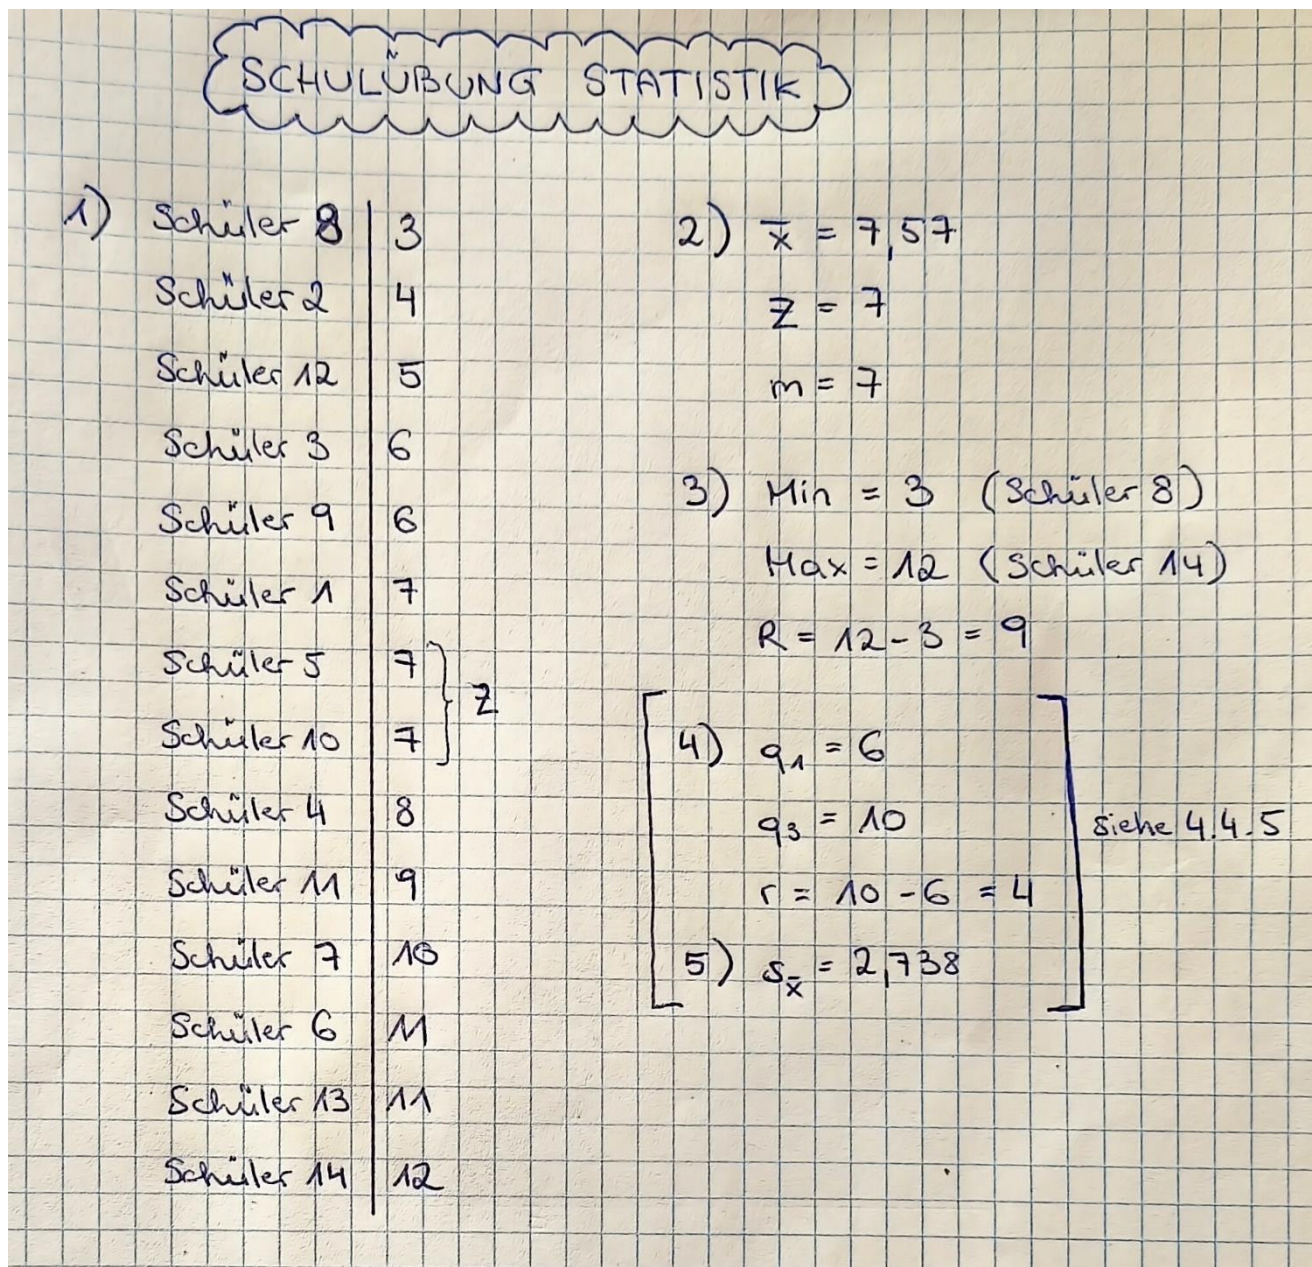 SCHULÜBUNG STATISTIK
1) Schüler 8 | 3
Schüler 2 | 4
Schüler 12 | 5
Schüler 3 | 6
Schüler 9 | 6
Schüler 1 | 7
Schüler 5 | 7
Schüler 10 | 7
z
Schüler 4 | 8
Schüler 11 | 9
Schüler 7 | 10
Schüler 6 | 11
Schüler 13 | 11
Schüler 14 | 12
2) x̅ = 7,57
z = 7
m = 7
3) Min = 3 (Schüler 8)
Max = 12 (Schüler 14)
R = 12 - 3 = 9
4) q₁ = 6
q₃ = 10
r = 10 - 6 = 4
5) s_x̅ = 2,738
siehe 4.4.5